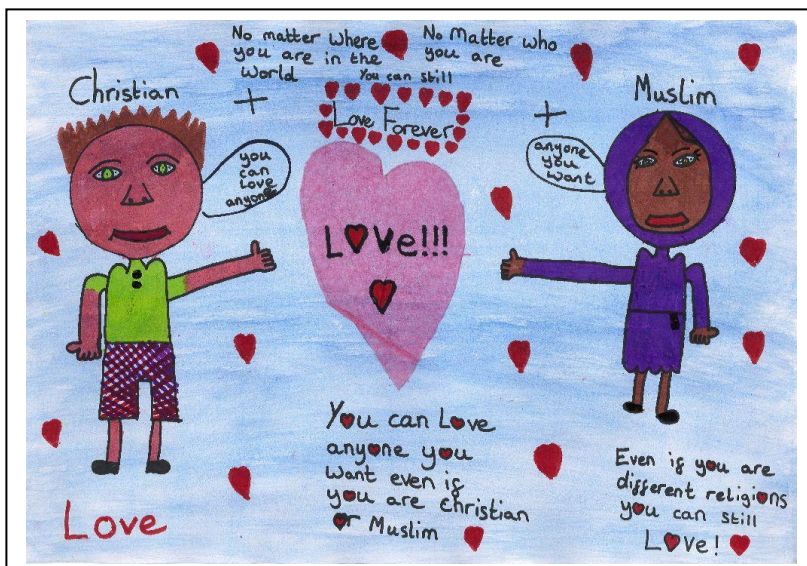 No matter where
you are in the
World
No Matter who
you are
You can still
Love Forever
Christian
+
+
Muslim
you
can
Love
anyone
anyone
you
want
Love!!!
You can Love
anyone you
want even if
you are Christian
or Muslim
Even if you are
different religions
you can still
Love!
Love